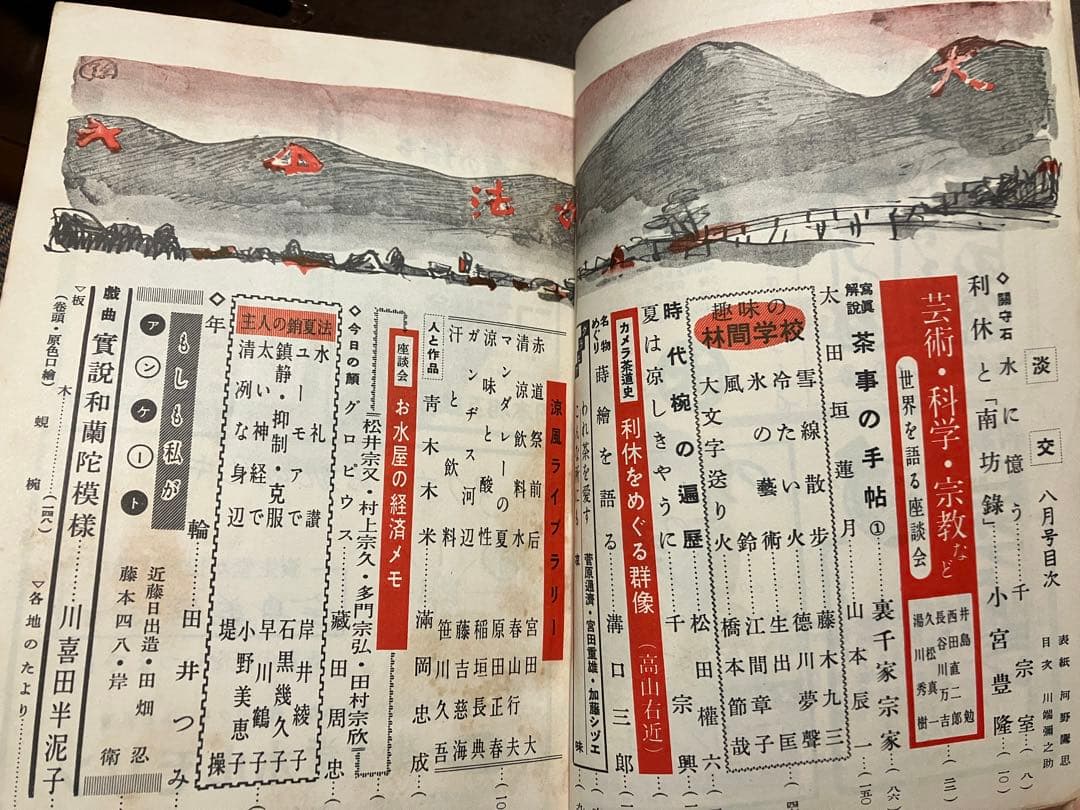 淡交 八月号目次
表紙 河野鷹思
目次 川端彌之助
◇關守石 水に憶う…千宗室…(八)
利休と「南坊錄」…小宮豊隆…(一〇)
芸術・科学・宗教など
世界を語る座談会
井島勉
西田直二郎
長谷川万吉
久松真一
湯川秀樹
…(三
寫眞解説 茶事の手帖①…裏千家宗家…(八六
太田垣蓮月…山本辰一…(五〇
趣味の林間学校
雪線散歩…藤木九三
冷たい火…德夢聲
氷の藝術…生出匡
風鈴…江間章子
大文字送り火…橋本節哉
(四
時代椀の遍歴…松田權六…(
夏は凉しきやうに…千宗興…(
カメラ茶道史 利休をめぐる群像(高山右近)
名物めぐり 蒔繪を語る…溝口三郎…(
われ茶を愛す
菅原通済・宮田重雄・加藤シヅエ
涼風ライブラリー
赤道祭前后…宮田
清涼飲料水…春山行夫
マンダレーの夏…原田正春
涼味と酸性…稲垣長典
ガンヂス河辺…藤吉慈海
汗と飲料…笹川
人と作品 青木木米…滿岡忠成…(
座談会 お水屋の経済メモ
松井宗又・村上宗久・多門宗弘・田村宗欣
◇今日の顔 グロピウス…蔵田周忠…(
主人の銷夏法
水礼讃…岸井綾子
ユーモアで…石黒幾久子
鎮静・抑制・克服…早川鶴子
太い神経で…小野美恵子
清冽な身辺…堤操
◇年輪…田井つみ…(
もしも私が
アンケート
近藤日出造・田畑忍
藤本四八・岸衛
戯曲 實說和蘭陀模様…川喜田半泥子
(巻頭・原色口繪)…(四八)
▽板木
蜆椀
▽各地のたより…
大
法